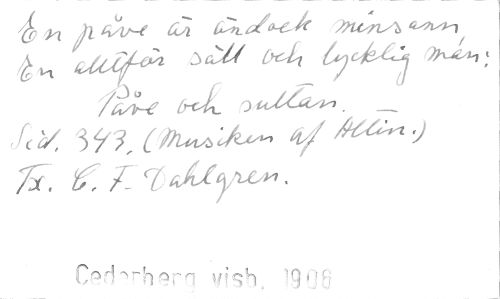 En påve är ändock minsann,
En alltför säll och lycklig man;
Påve och sultan.
Sid. 343. (Musiken af Altin.)
Tx. C. F. Dahlgren.
Cederberg visb. 1906